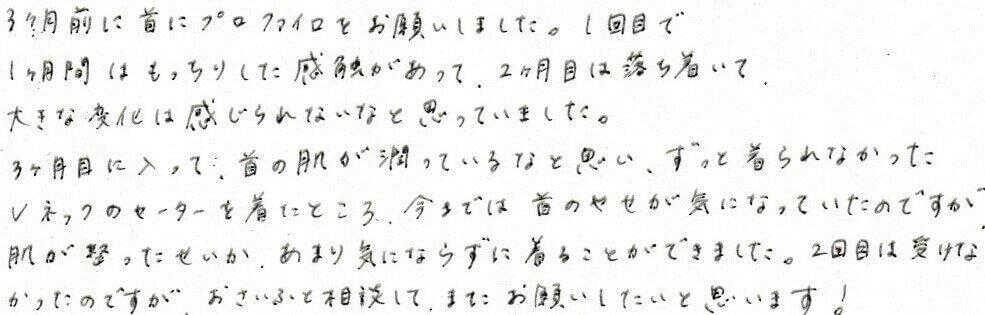 3ヶ月前に首にプロファイロをお願いしました。1回目で
1ヶ月間はもっちりした感触があって、2ヶ月目は落ち着いて、
大きな変化は感じられないなと思っていました。
3ヶ月目に入って、首の肌が潤っているなと思い、ずっと着られなかった
Vネックのセーターを着たところ、今までは首のやせが気になっていたのですが、
肌が整ったせいか、あまり気にならずに着ることができました。2回目は受けな
かったのですが、おさいふと相談して、またお願いしたいと思います!